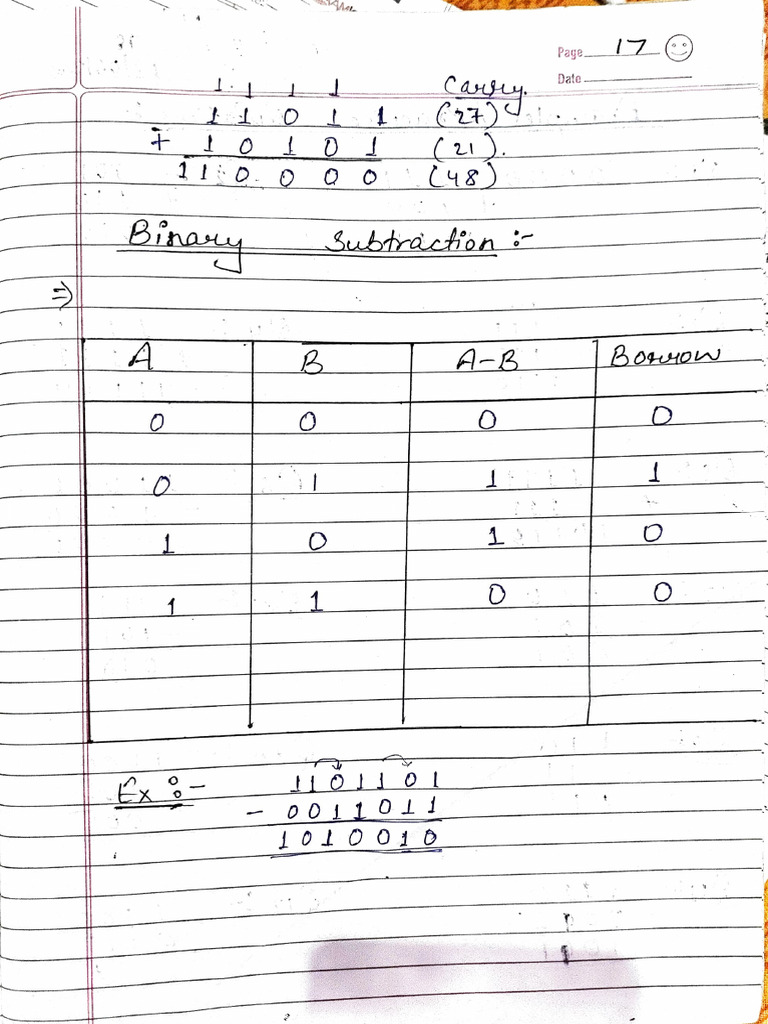 Page 17
Date
1 1 1 1 Carry.
1 1 0 1 1. (27)
+ 1 0 1 0 1 (21).
1 1 0 0 0 0 (48)
Binary Subtraction :-
⇒
A B A-B Borrow
0 0 0 0
0 1 1 1
1 0 1 0
1 1 0 0
Ex :- 1101101
- 0011011
1010010